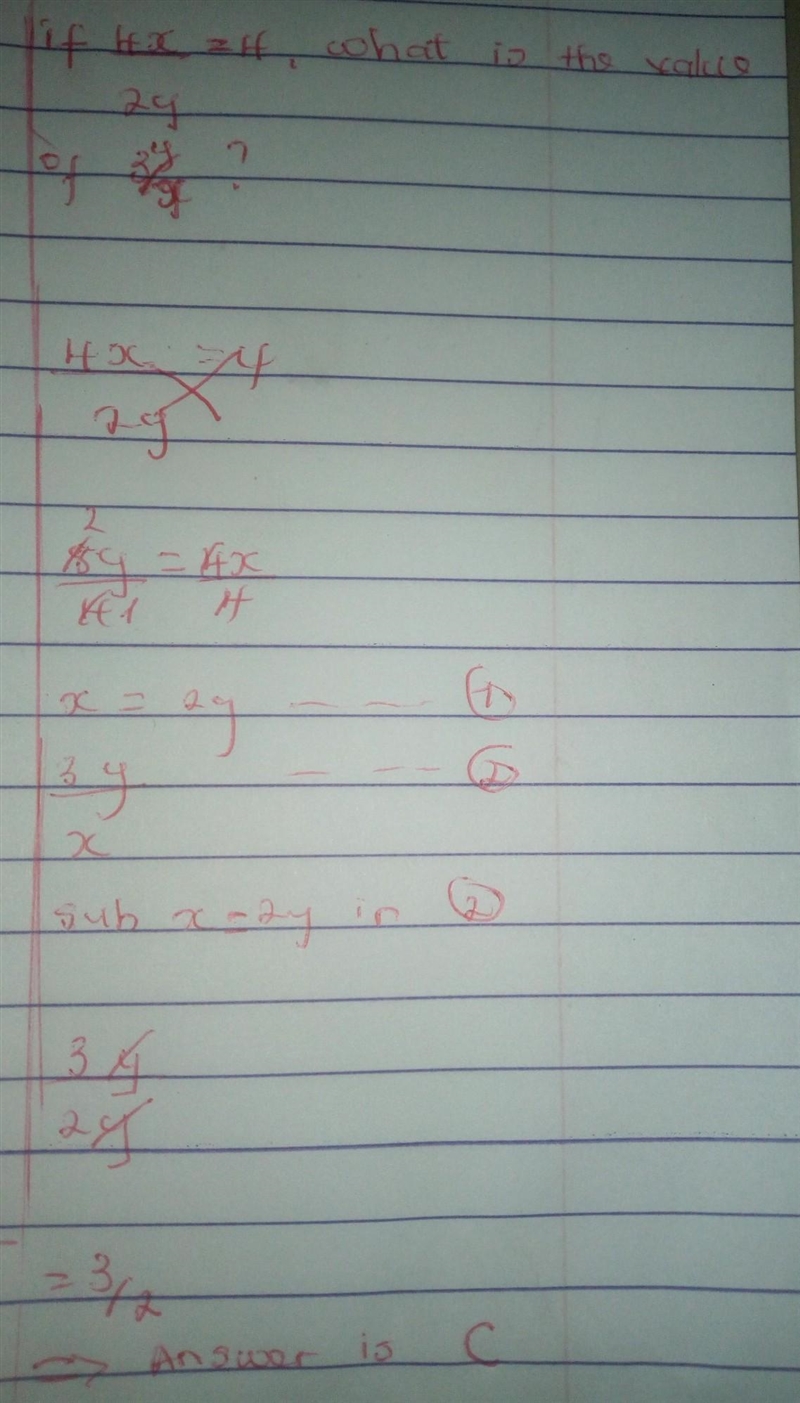 if 4x = 4, what is the value
2y
of 3y/x ?
4x = 4
2y
2
8y = 4x
41 4
x = 2y - - - ①
3y - - - ②
x
sub x = 2y in ②
3y
2y
= 3/2
⇒ Answer is C